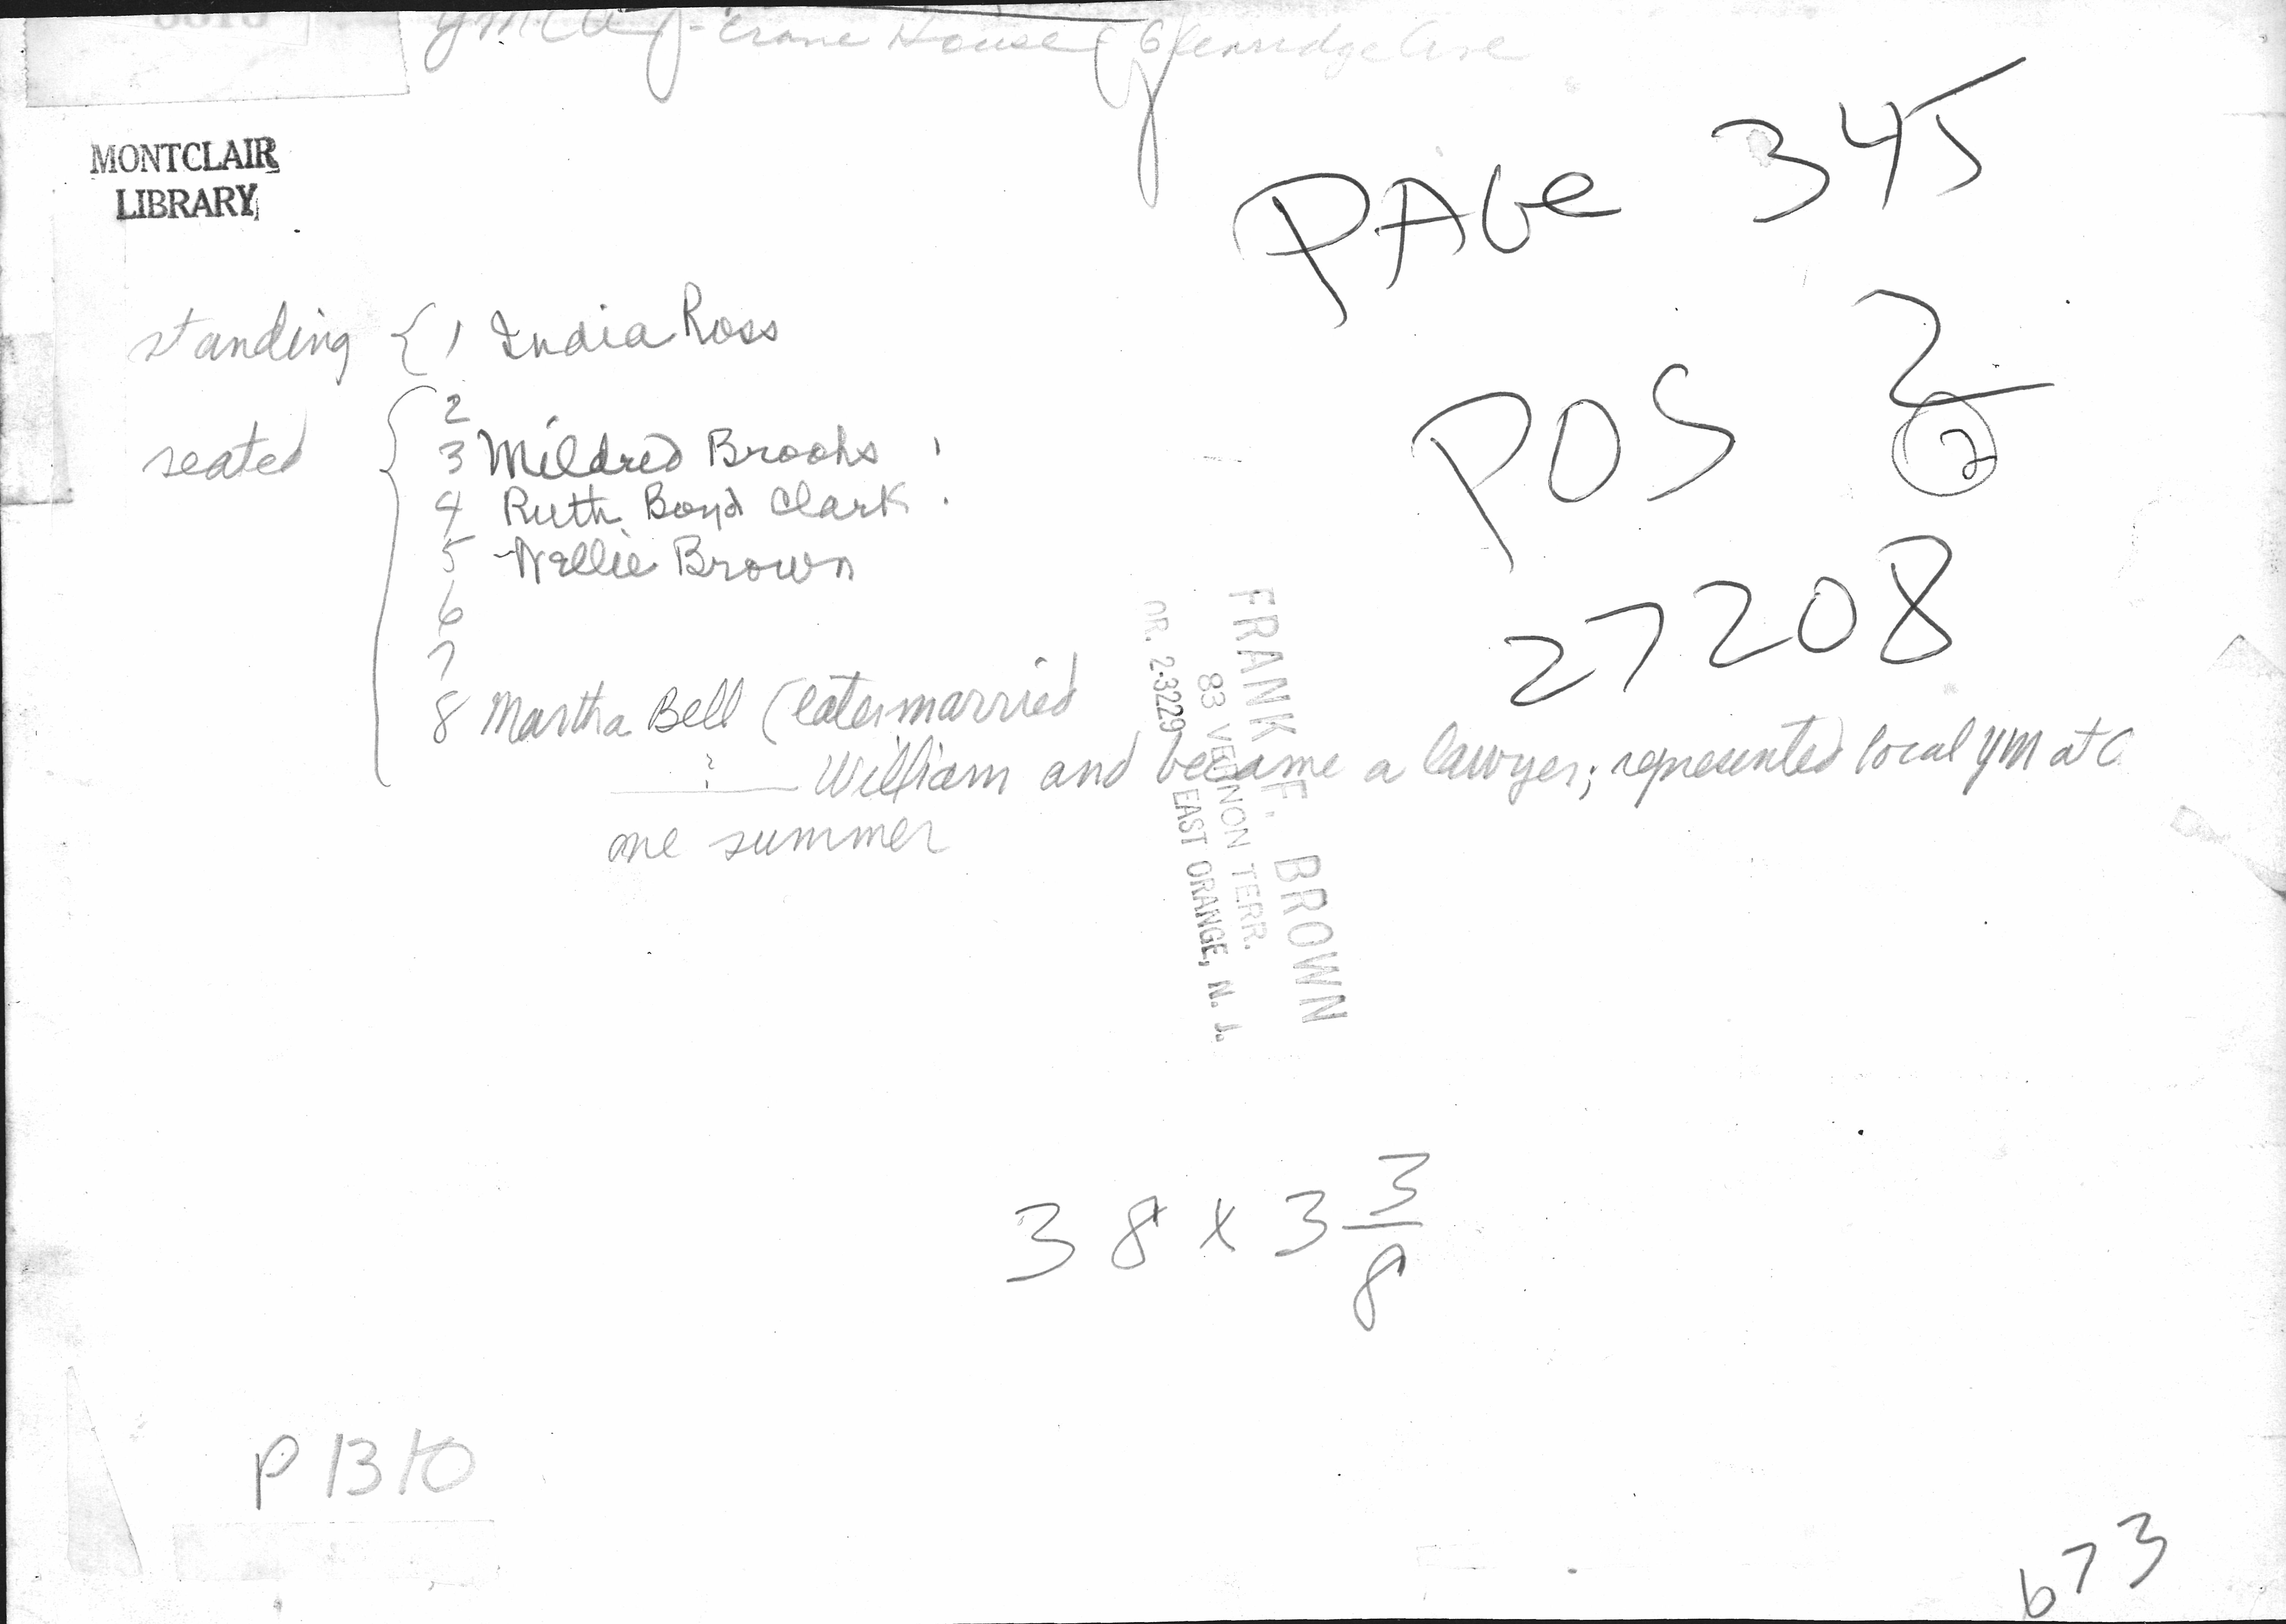 - Crane House - Glenridge Ave
MONTCLAIR
LIBRARY
PAGE 345
POS 2
2
27208
standing { 1 India Ross
seated { 2
3 Mildred Brooks
4 Ruth Boyd Clark
5 Nellie Brown
6
7
8 Martha Bell (later married
? William and became a lawyer; represented local YM at C
one summer
FRANK F. BROWN
83 VERNON TERR.
OR. 2-3229 EAST ORANGE, N. J.
38 x 3 3/8
P 1310
673